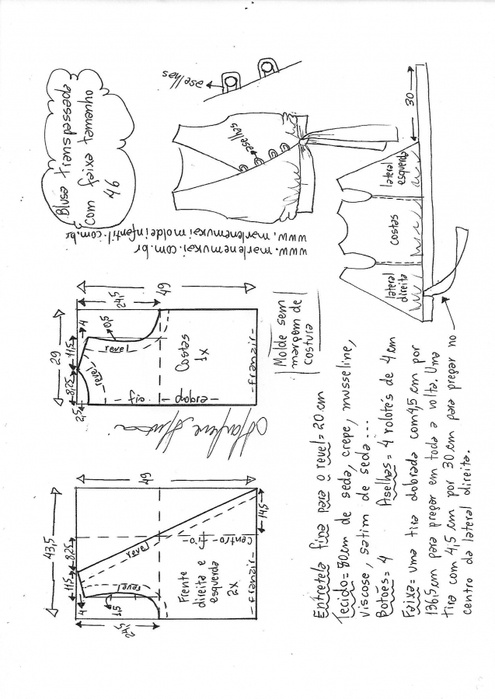 Blusa transpassada
com faixa tamanho
46
aselhas
aselhas
www.marlenemukai.com.br
www.marlenemukaimoldeinfantil.com.br
30
lateral
direita
costas
lateral
esquerda
29
2,5
8,25
11,5
4
0,5
24,5
49
revel
revel
Costas
1x
dobra
fio
franzir
Molde sem
margem de
costura
Marlene Mukai
43,5
24,5
4
11,5
8,25
1,5
45
14,5
revel
revel
Frente
direita e
esquerda
2x
Centro
fio
franzir
Entretela fina para o revel= 20 cm
Tecido= 80cm de seda, crepe, musseline,
viscose, satim de seda...
Botoes= 4 Aselhas= 4 rolotês de 4cm
Faixa= Uma tira dobrada com 4,5 cm por
136,5cm para pregar em toda a volta. Uma
tira com 4,5 cm por 30 cm para pregar no
centro da lateral direita.